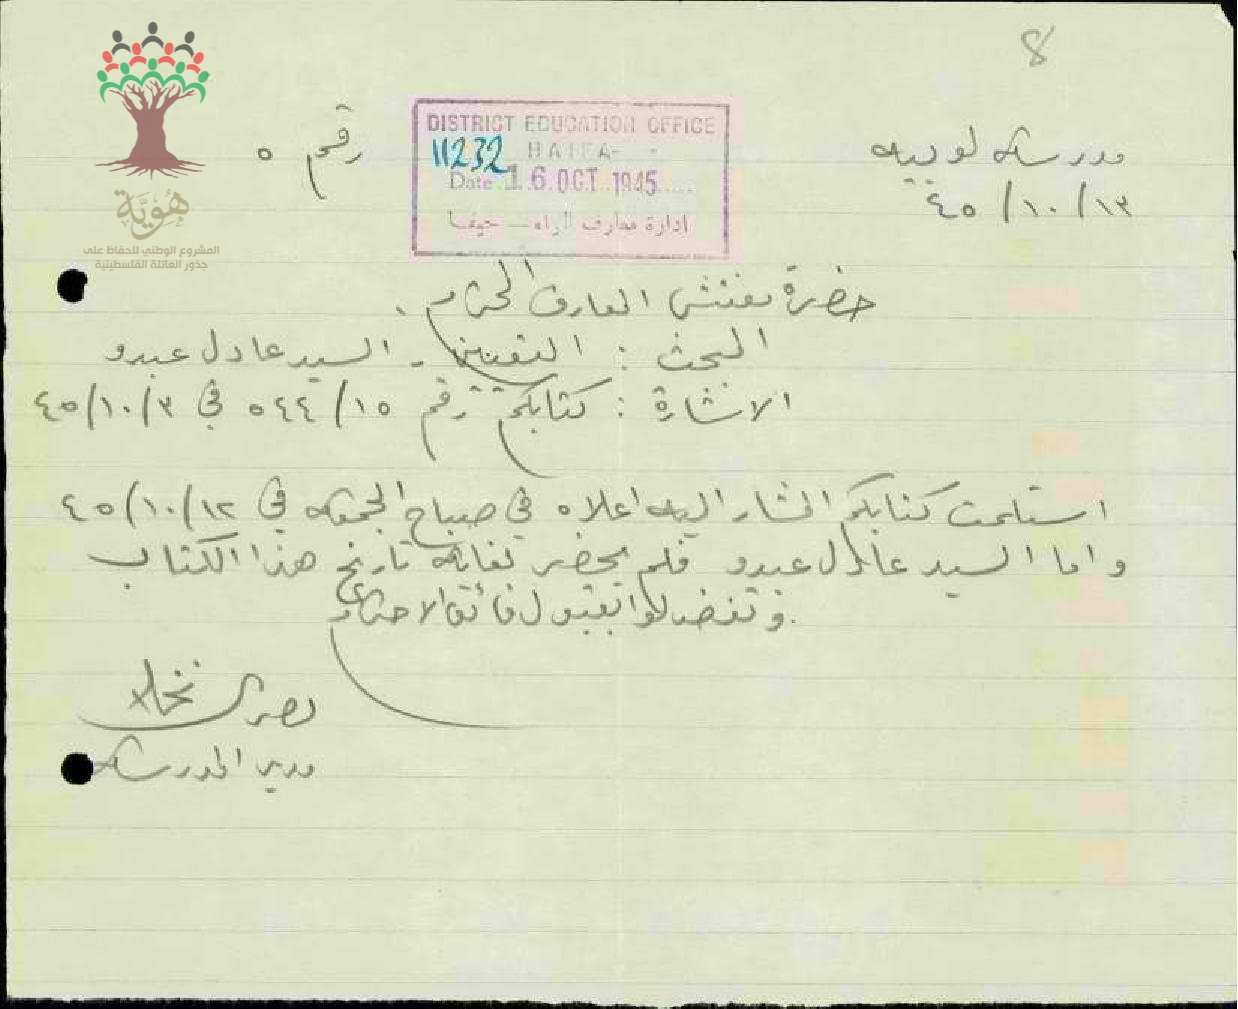 8
مدرسة لوبيه
١٣/١٠/٤٥
رقم ٥
DISTRICT EDUCATION OFFICE
11232 HAIFA
Date 16 OCT 1945
ادارة معارف اللواء — حيفا
هُوِيَّة
المشروع الوطني للحفاظ على
جذور العائلة الفلسطينية
حضرة مفتش المعارف المحترم .
البحث : التعيين - السيد عادل عبدو
الاشارة : كتابكم رقم ٥٤٤/١٥ في ٤٥/١٠/٣
استلمت كتابكم المشار اليه اعلاه في صباح الجمعه في ٤٥/١٠/١٢
واما السيد عادل عبدو فلم يحضر لغاية تاريخ هذا الكتاب
وتفضلوا بقبول فائق الاحترام
نصري
مدير المدرسة